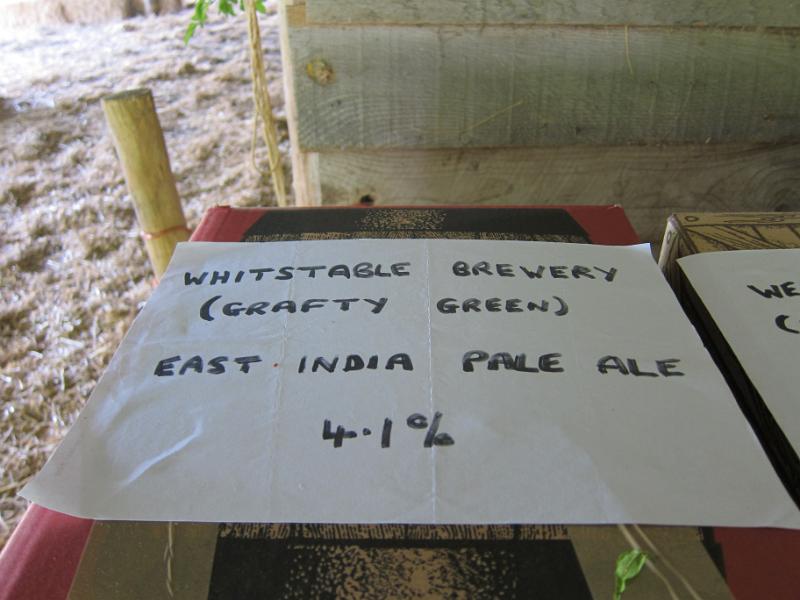 WHITSTABLE BREWERY
(GRAFTY GREEN)
EAST INDIA PALE ALE
4.1%
WE
(